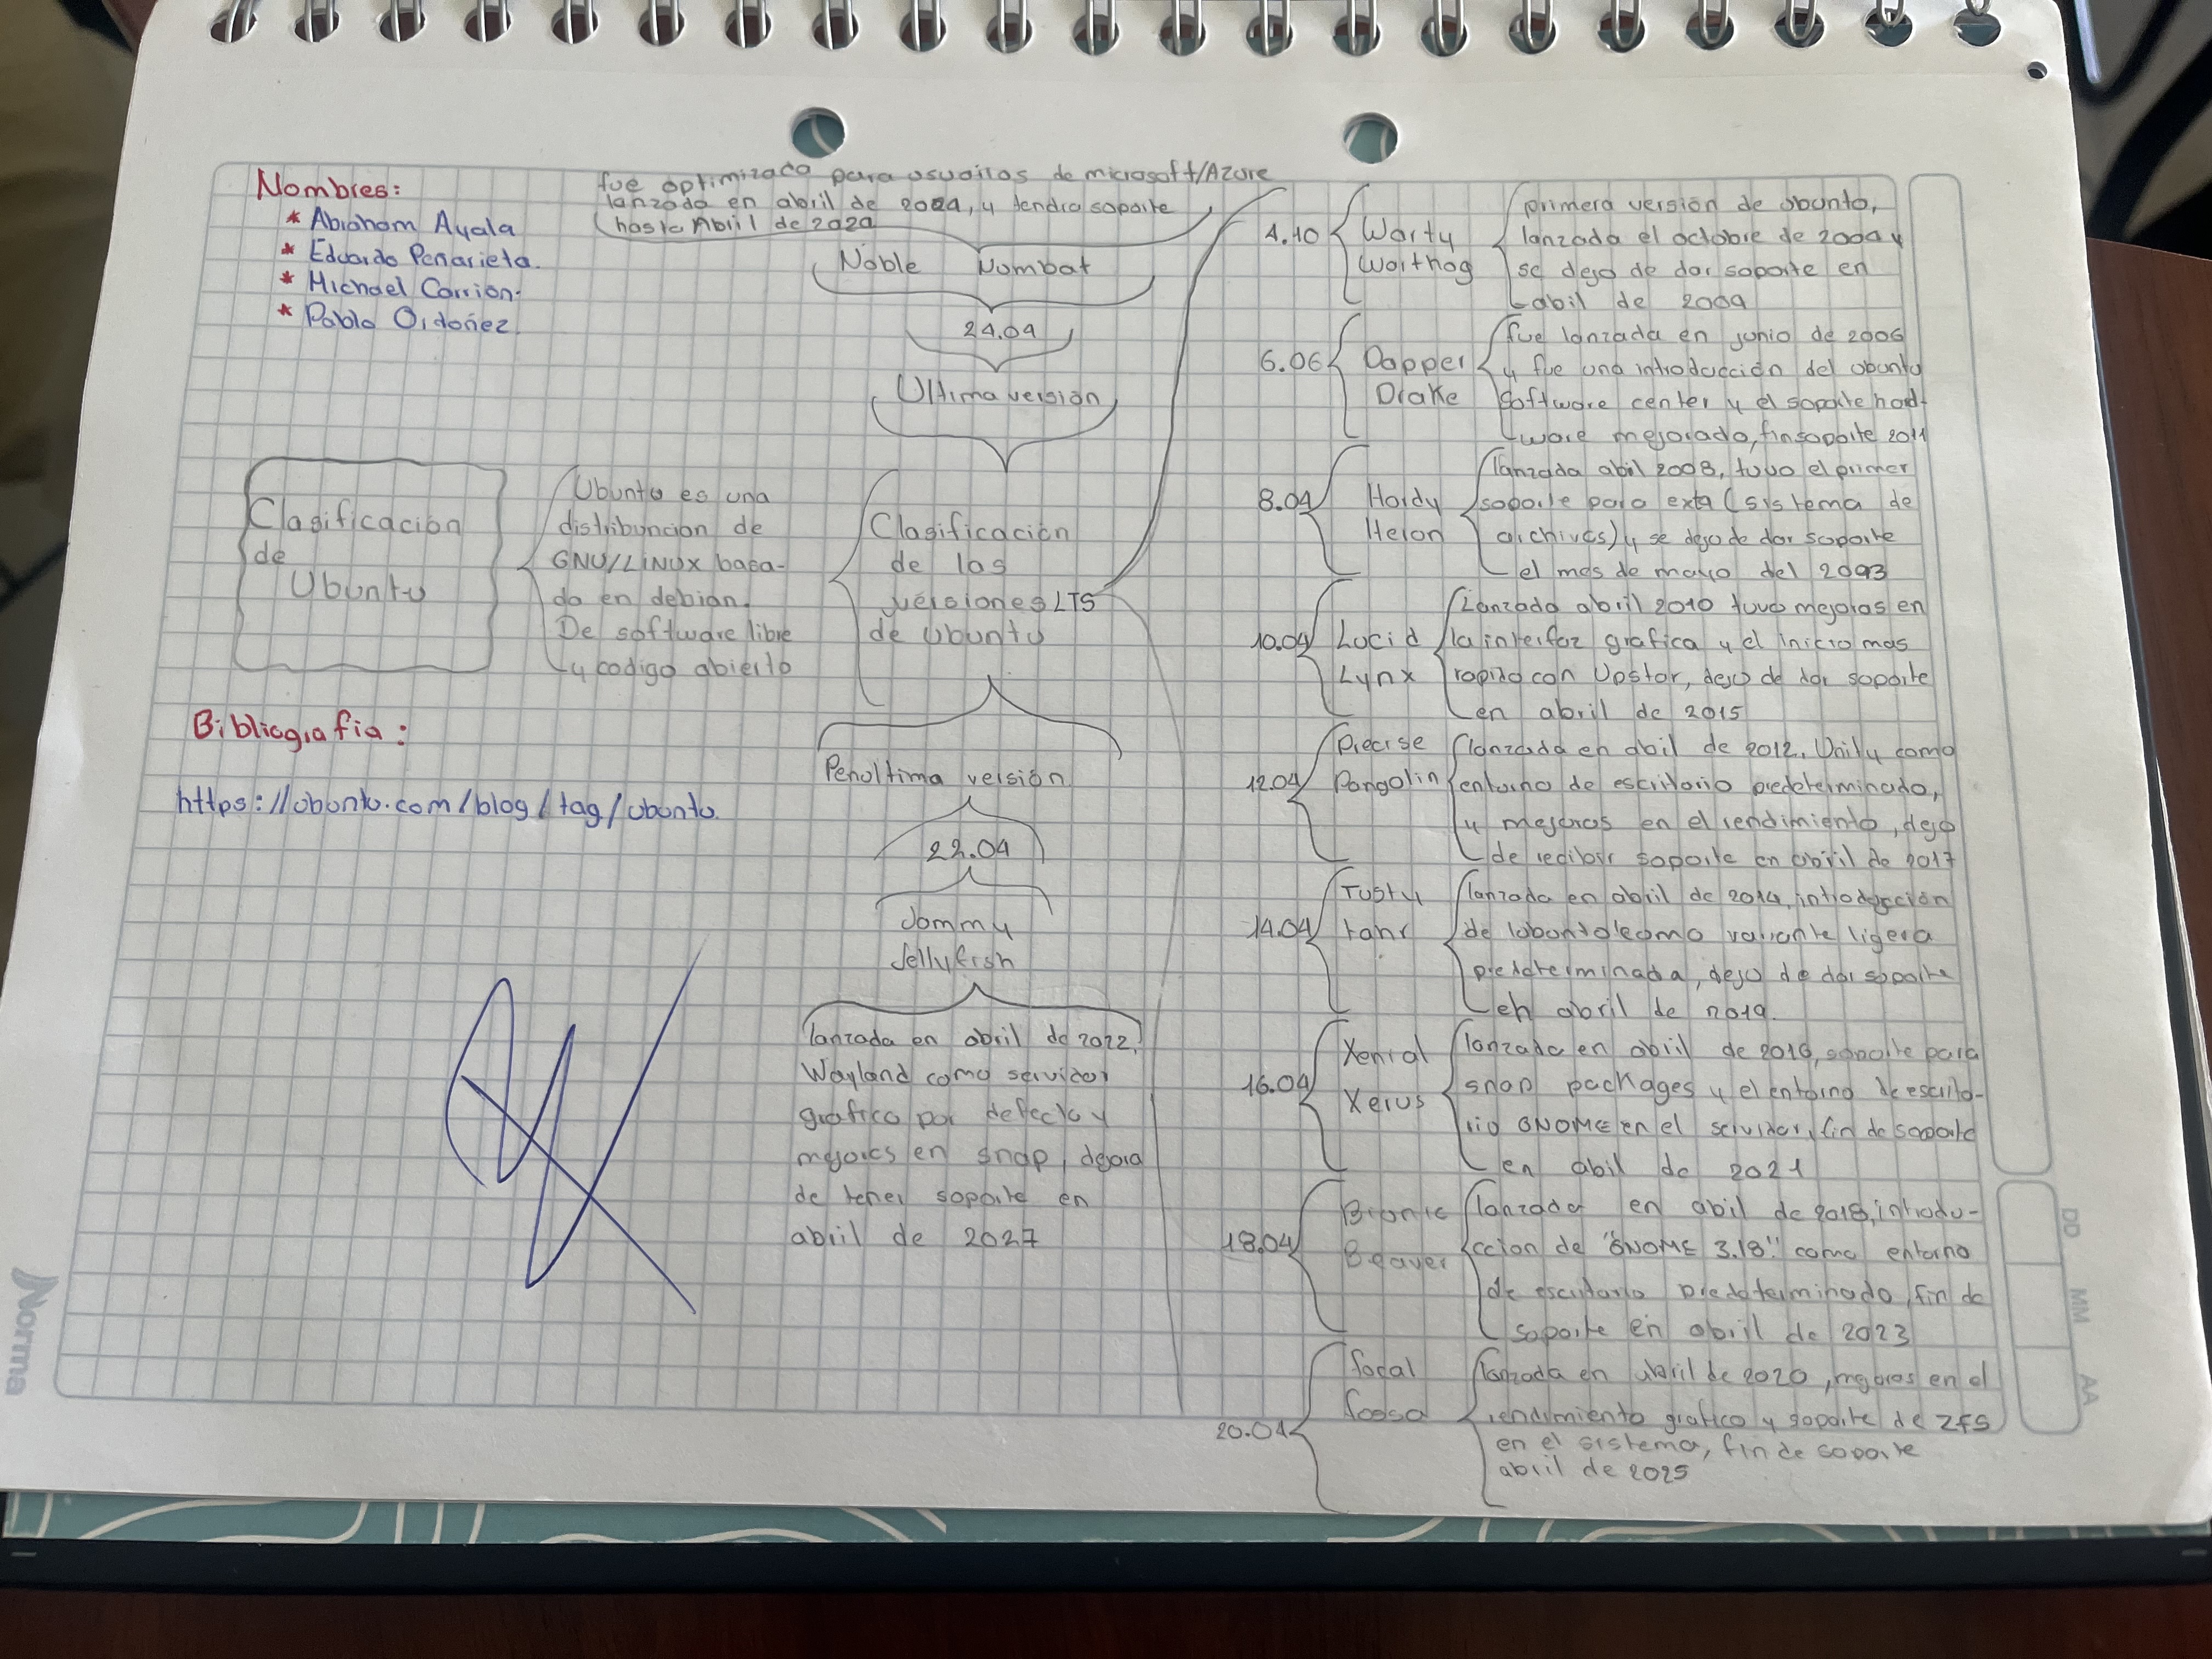 Nombres:
* Abraham Ayala
* Eduardo Penarieta.
* Michael Carrion.
* Pablo Ordoñez.
fue optimizado para usuarios de microsoft/Azure
lanzado en abril de 2024, y tendra soporte
hasta Abril de 2029
Noble Nombat
24.04
Ultima versión
Clasificacion
de
Ubuntu
Ubuntu es una
distribuncion de
GNU/LINUX basa-
do en debian.
De software libre
y codigo abierto
Clasificación
de las
versiones LTS
de Ubuntu
Penultima versión
22.04
Jammy
Jellyfish
lanzada en abril de 2022,
Wayland como servidor
grafico por defecto y
mejores en snap, dejara
de tener soporte en
abril de 2027
4.10
Warty
Warthog
primera versión de ubuntu,
lanzada el octubre de 2004 y
se dejo de dar soporte en
abril de 2009
6.06
Dapper
Drake
fue lanzada en junio de 2006
y fue una introducción del ubuntu
software center y el soporte hard-
ware mejorado, fin soporte 2011
8.04
Hardy
Heron
lanzada abril 2008, tuvo el primer
soporte para ext4 (sistema de
archivos) y se dejo de dar soporte
el mes de mayo del 2093
10.04
Lucid
Lynx
Lanzado abril 2010 tuvo mejoras en
la interfaz grafica y el inicio mas
rapido con Upstar, dejo de dar soporte
en abril de 2015
12.04
Precise
Pangolin
lanzada en abril de 2012, Unity como
entorno de escritorio predeterminado,
y mejoras en el rendimiento, dejo
de recibir soporte en abril de 2017
14.04
Trusty
tahr
lanzada en abril de 2014,
de como variante ligera
predeterminada, dejo de dar soporte
en abril de 2019.
16.04
Xenial
Xerus
lanzada en abril de 2016, soporte para
snap packages y el entorno de escrito-
rio GNOME en el servidor, fin de soporte
en abril de 2021
18.04
Bionic
Beaver
lanzada en abril de 2018, introdu-
ccion de "GNOME 3.18" como entorno
de escritorio predeterminado, fin de
soporte en abril de 2023
20.04
focal
fossa
lanzada en abril de 2020, mejores en el
rendimiento grafico y soporte de ZFS
en el sistema, fin de soporte
abril de 2025
Bibliografia:
https://ubuntu.com/blog/tag/ubuntu.
Norma
DD
MM
AA